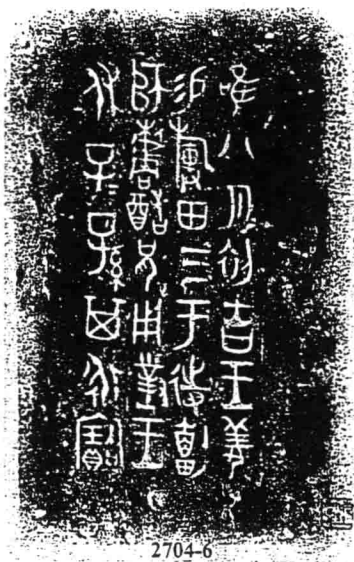 唯八月初吉王姜易
旟田三于待
師櫨酷兄用對王
休子=孫其永寶
2704-6